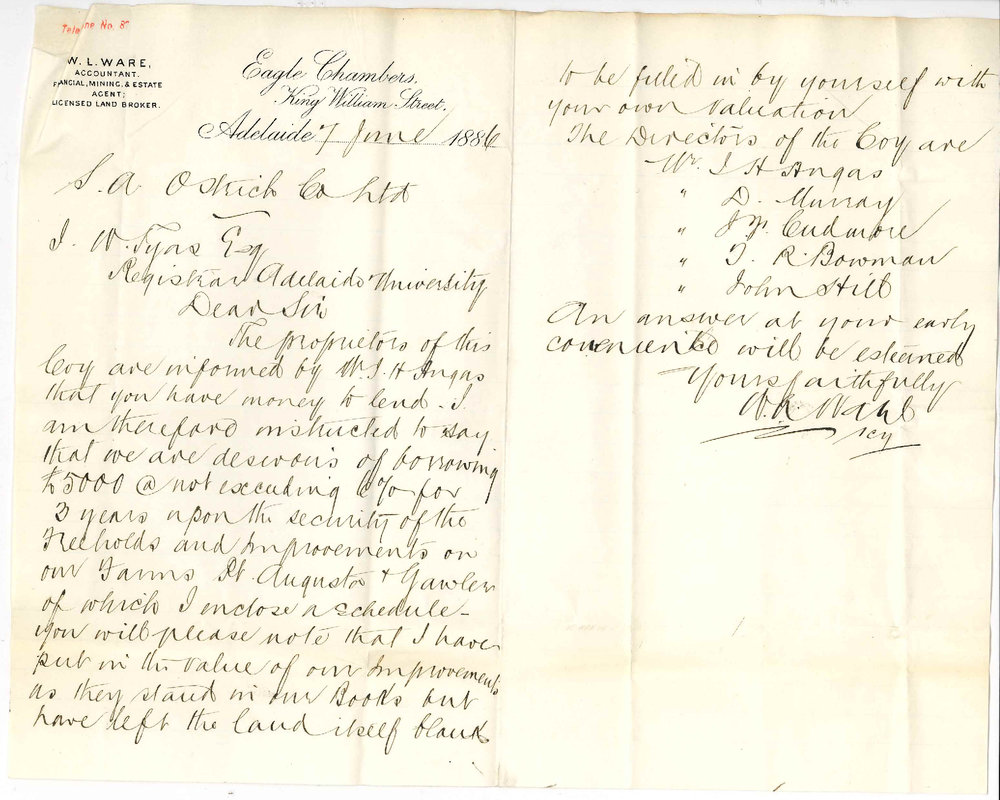 Tele ne No. 8
W. L. WARE,
ACCOUNTANT.
FINANCIAL, MINING, & ESTATE
AGENT;
LICENSED LAND BROKER.
Eagle Chambers,
King William Street,
Adelaide 7 June 1886
S. A. Ostrich Co Ltd
J. W. Tyas Esq
Registrar Adelaide University
Dear Sir
The proprietors of this
Coy are informed by Mr J H Angas
that you have money to lend. I
am therefore instructed to say
that we are desirous of borrowing
£5000 @ not exceeding 6% for
3 years upon the security of the
Freeholds and Improvements on
our Farms Pt. Augusta & Gawler
of which I enclose a schedule -
you will please note that I have
put in the value of our Improvements
as they stand in our Books but
have left the land itself blank
to be filled in by yourself with
your own valuation
The Directors of the Coy are
Mr. J H Angas
" D. Murray
" J F. Cudmore
" T. R. Bowman
" John Hill
An answer at your early
convenience will be esteemed
Yours faithfully
W. L. Ware
scy